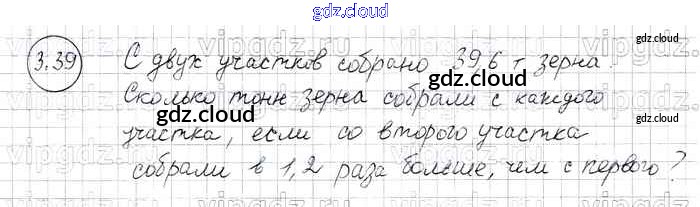 gdz.cloud
3.39 С двух участков собрано 39,6 т зерна.
gdz.cloud
Сколько тонн зерна собрали с каждого
gdz.cloud
участка, если со второго участка
собрали в 1,2 раза больше, чем с первого?
gdz.cloud